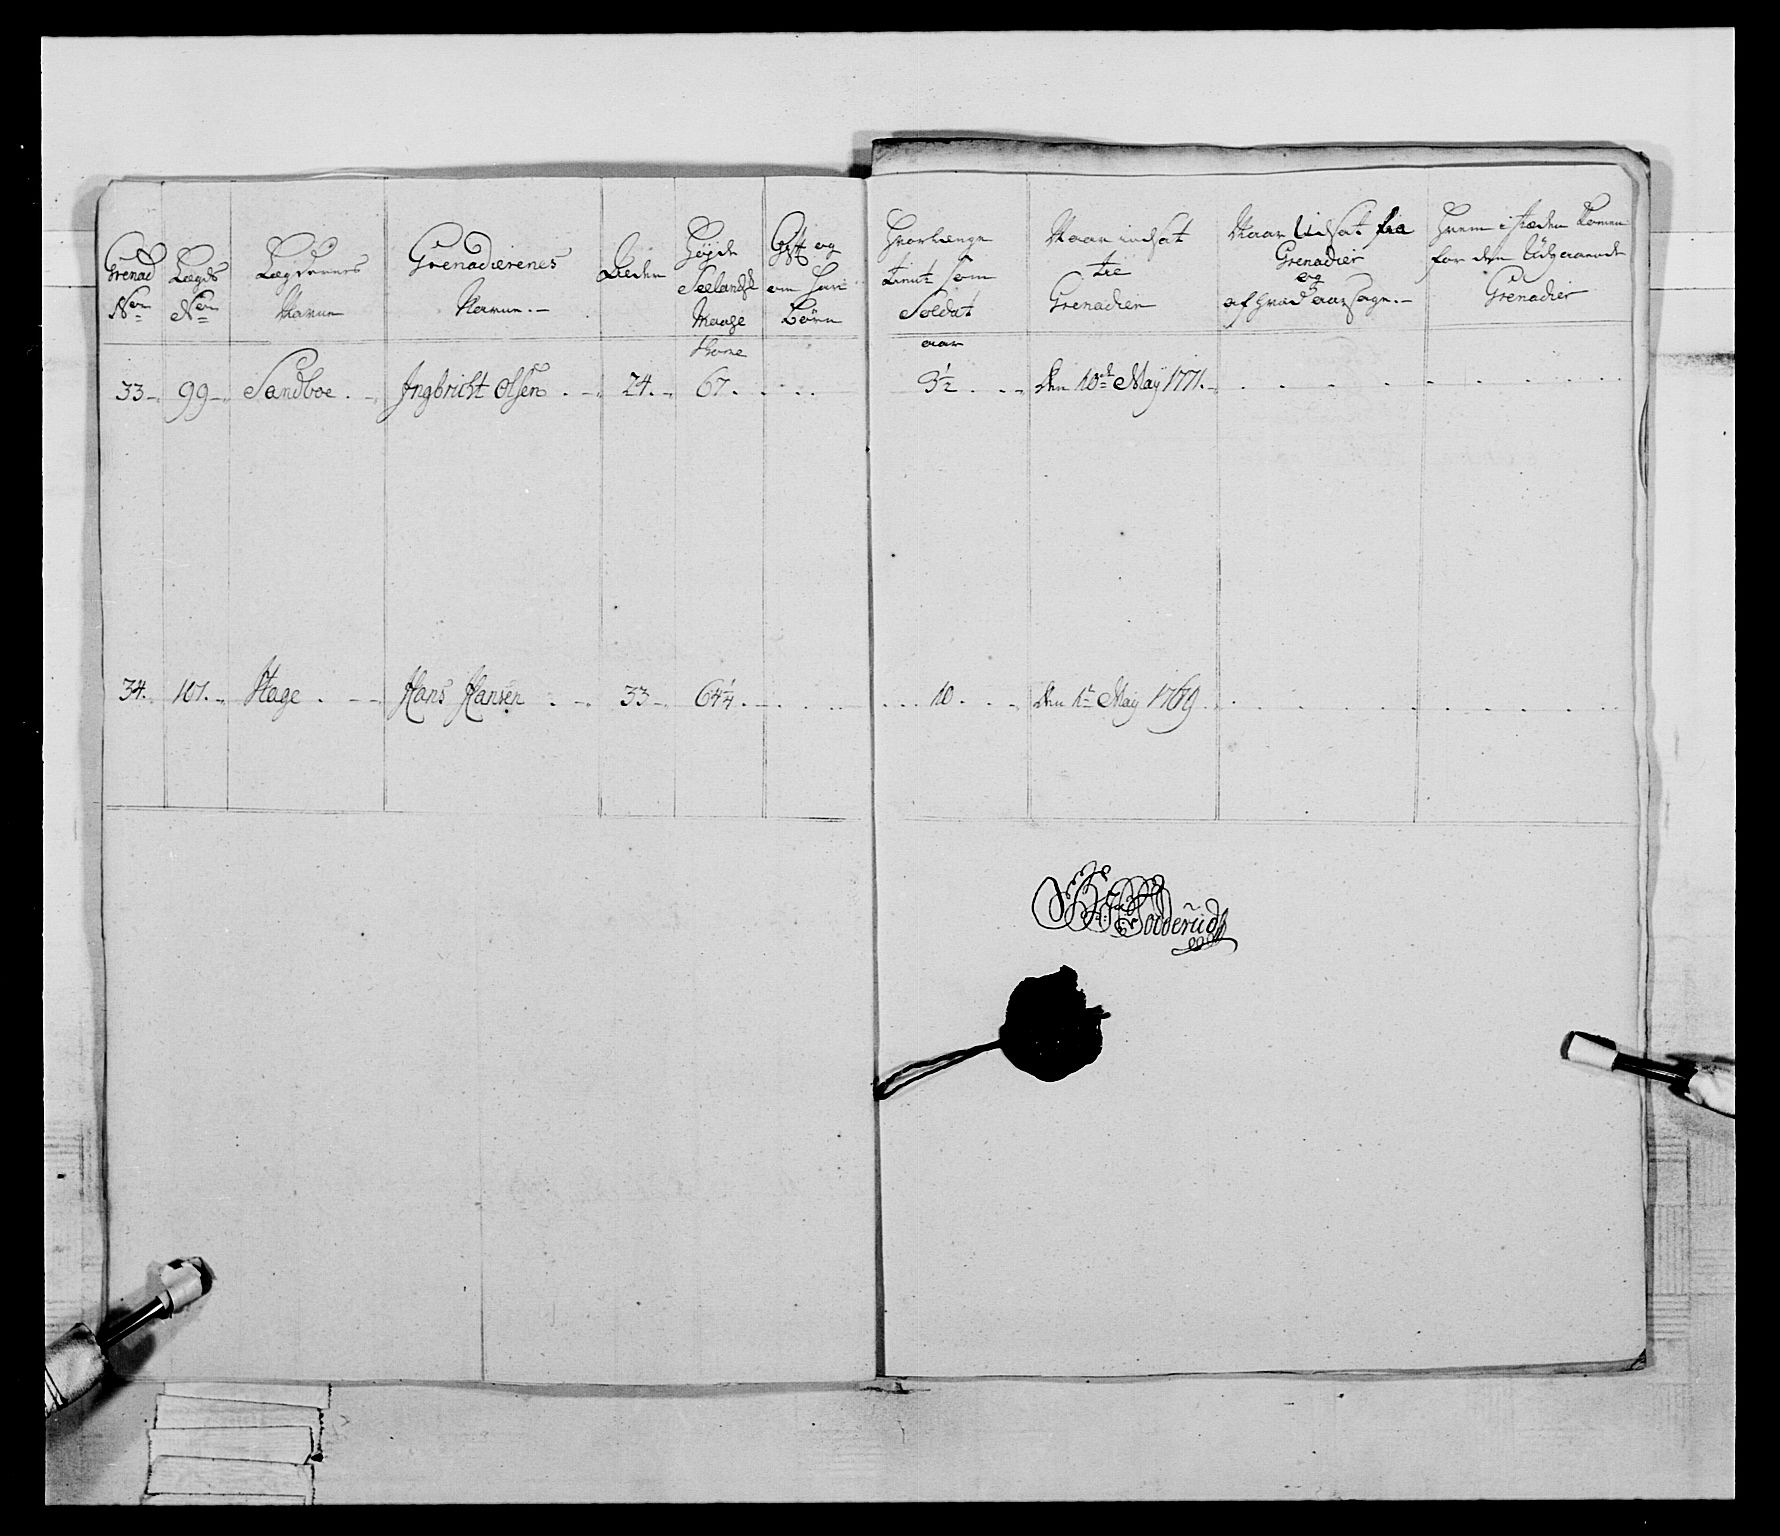 Grenad
No
Lægds
No
Lægdernes
Navne
Grenadierenes
Navne.-
Alder
Høyde
Seelandsk
Maage
Tome
Gift og
om har
Børn
Hvorlenge
tient som
Soldat
aar
Naar indsat
til
Grenadier
Naar Udsat fra
Grenadier
og
af hvad aarsage.-
Hvem i stæden kommen
for den Udgaaende
Grenadier
33 99 Sandboe Ingbricht Olsen 24 67 3½ den 10de May 1771
34. 101. Hage Hans Hansen 33 64¼ 10 den 1te May 1769